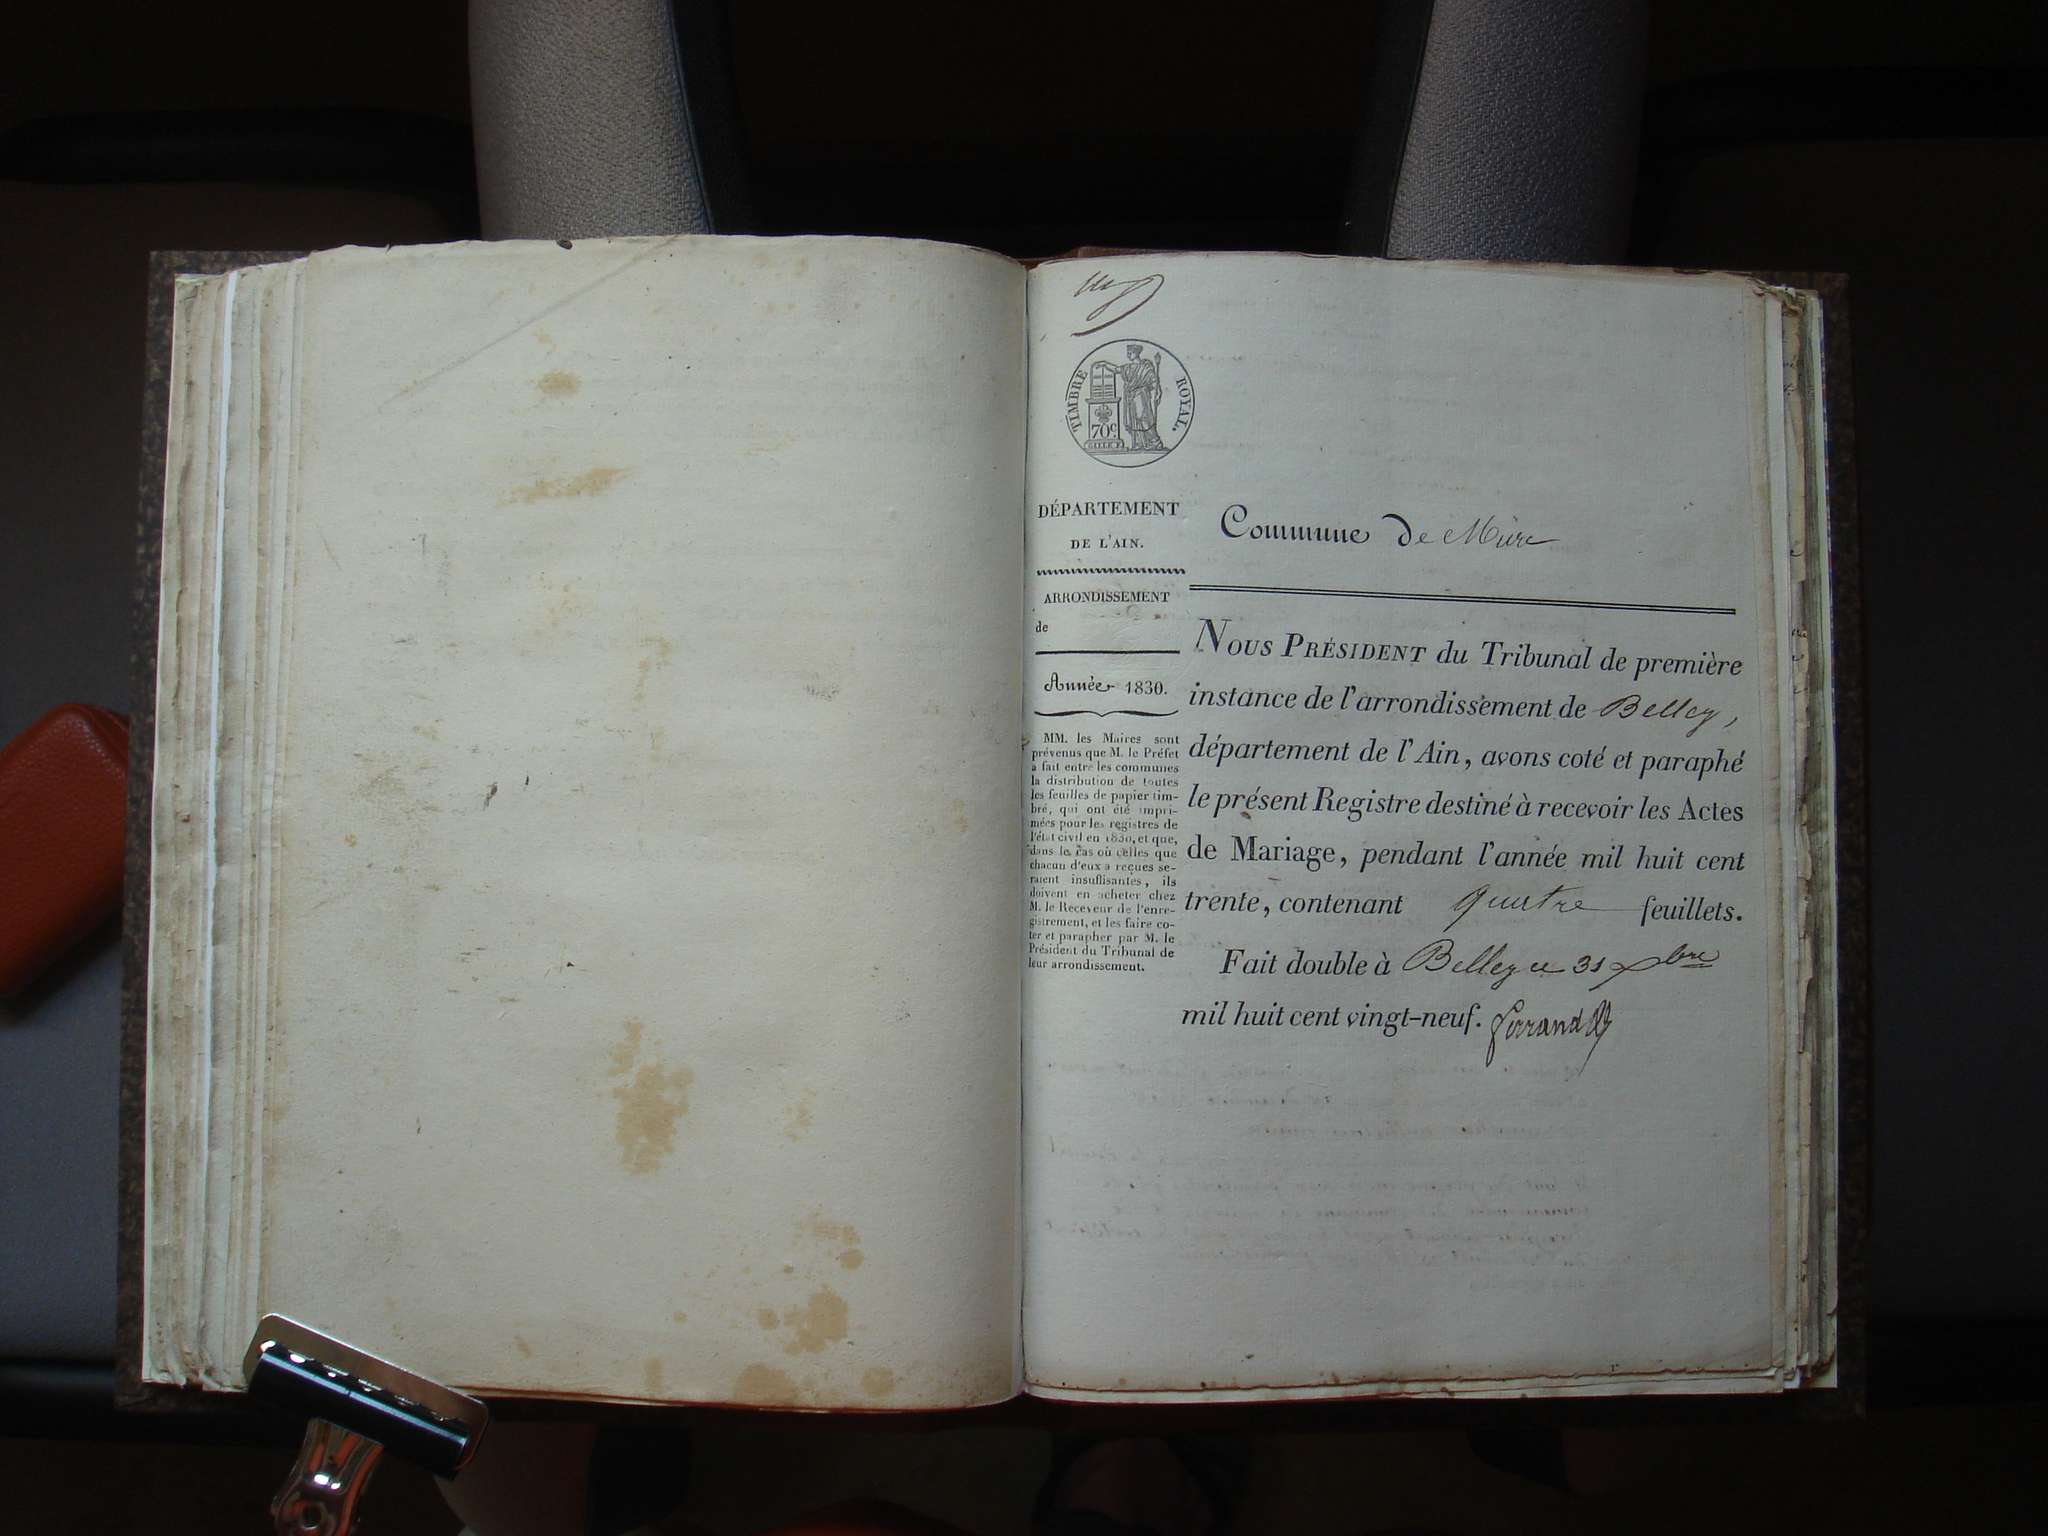 TIMBRE ROYAL.
70c
DÉPARTEMENT
DE L'AIN.
ARRONDISSEMENT
de
Année 1830.
MM. les Maires sont
prévenus que M. le Préfet
a fait entre les communes
la distribution de toutes
les feuilles de papier tim-
bré, qui ont été impri-
mées pour les registres de
l'état civil en 1830, et que,
dans le cas où celles que
chacun d'eux a reçues se-
raient insuffisantes, ils
doivent en acheter chez
M. le Receveur de l'enre-
gistrement, et les faire co-
ter et parapher par M. le
Président du Tribunal de
leur arrondissement.
Commune de
NOUS PRÉSIDENT du Tribunal de première
instance de l'arrondissement de Belley,
département de l'Ain, avons coté et paraphé
le présent Registre destiné à recevoir les Actes
de Mariage, pendant l'année mil huit cent
trente, contenant quatre feuillets.
Fait double à Belley ce 31 xbre
mil huit cent vingt-neuf. Ferrand